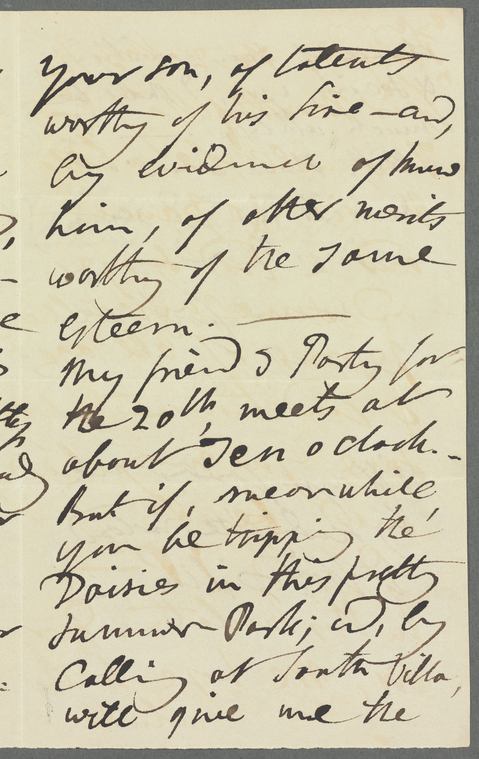 Your son, of talents
worthy of his Sire – and,
by evidence of
him, of other merits
worthy of the same
esteem. —
My friend's Party for
the 20th, meets at
about Ten o clock. –
But if, meanwhile,
you be tripping the
Daisies in this pretty
Summer Park; and, by
Calling at South Villa,
will give me the